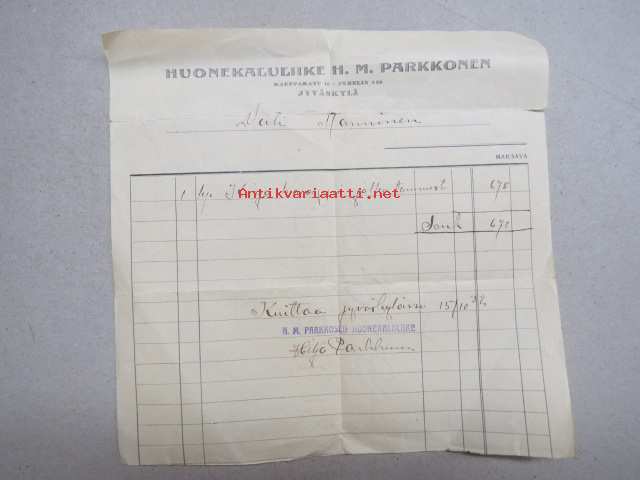 HUONEKALULIIKE H. M. PARKKONEN
KAUPPAKATU
JYVÄSKYLÄ
Manninen
MAKSAVA
1 kp.
Antikvariaatti.net
670
Smk 670
Kuittaa Jyväskylässä 15/10
H. M. PARKKOSEN HUONEKALULIIKE
Parkkonen